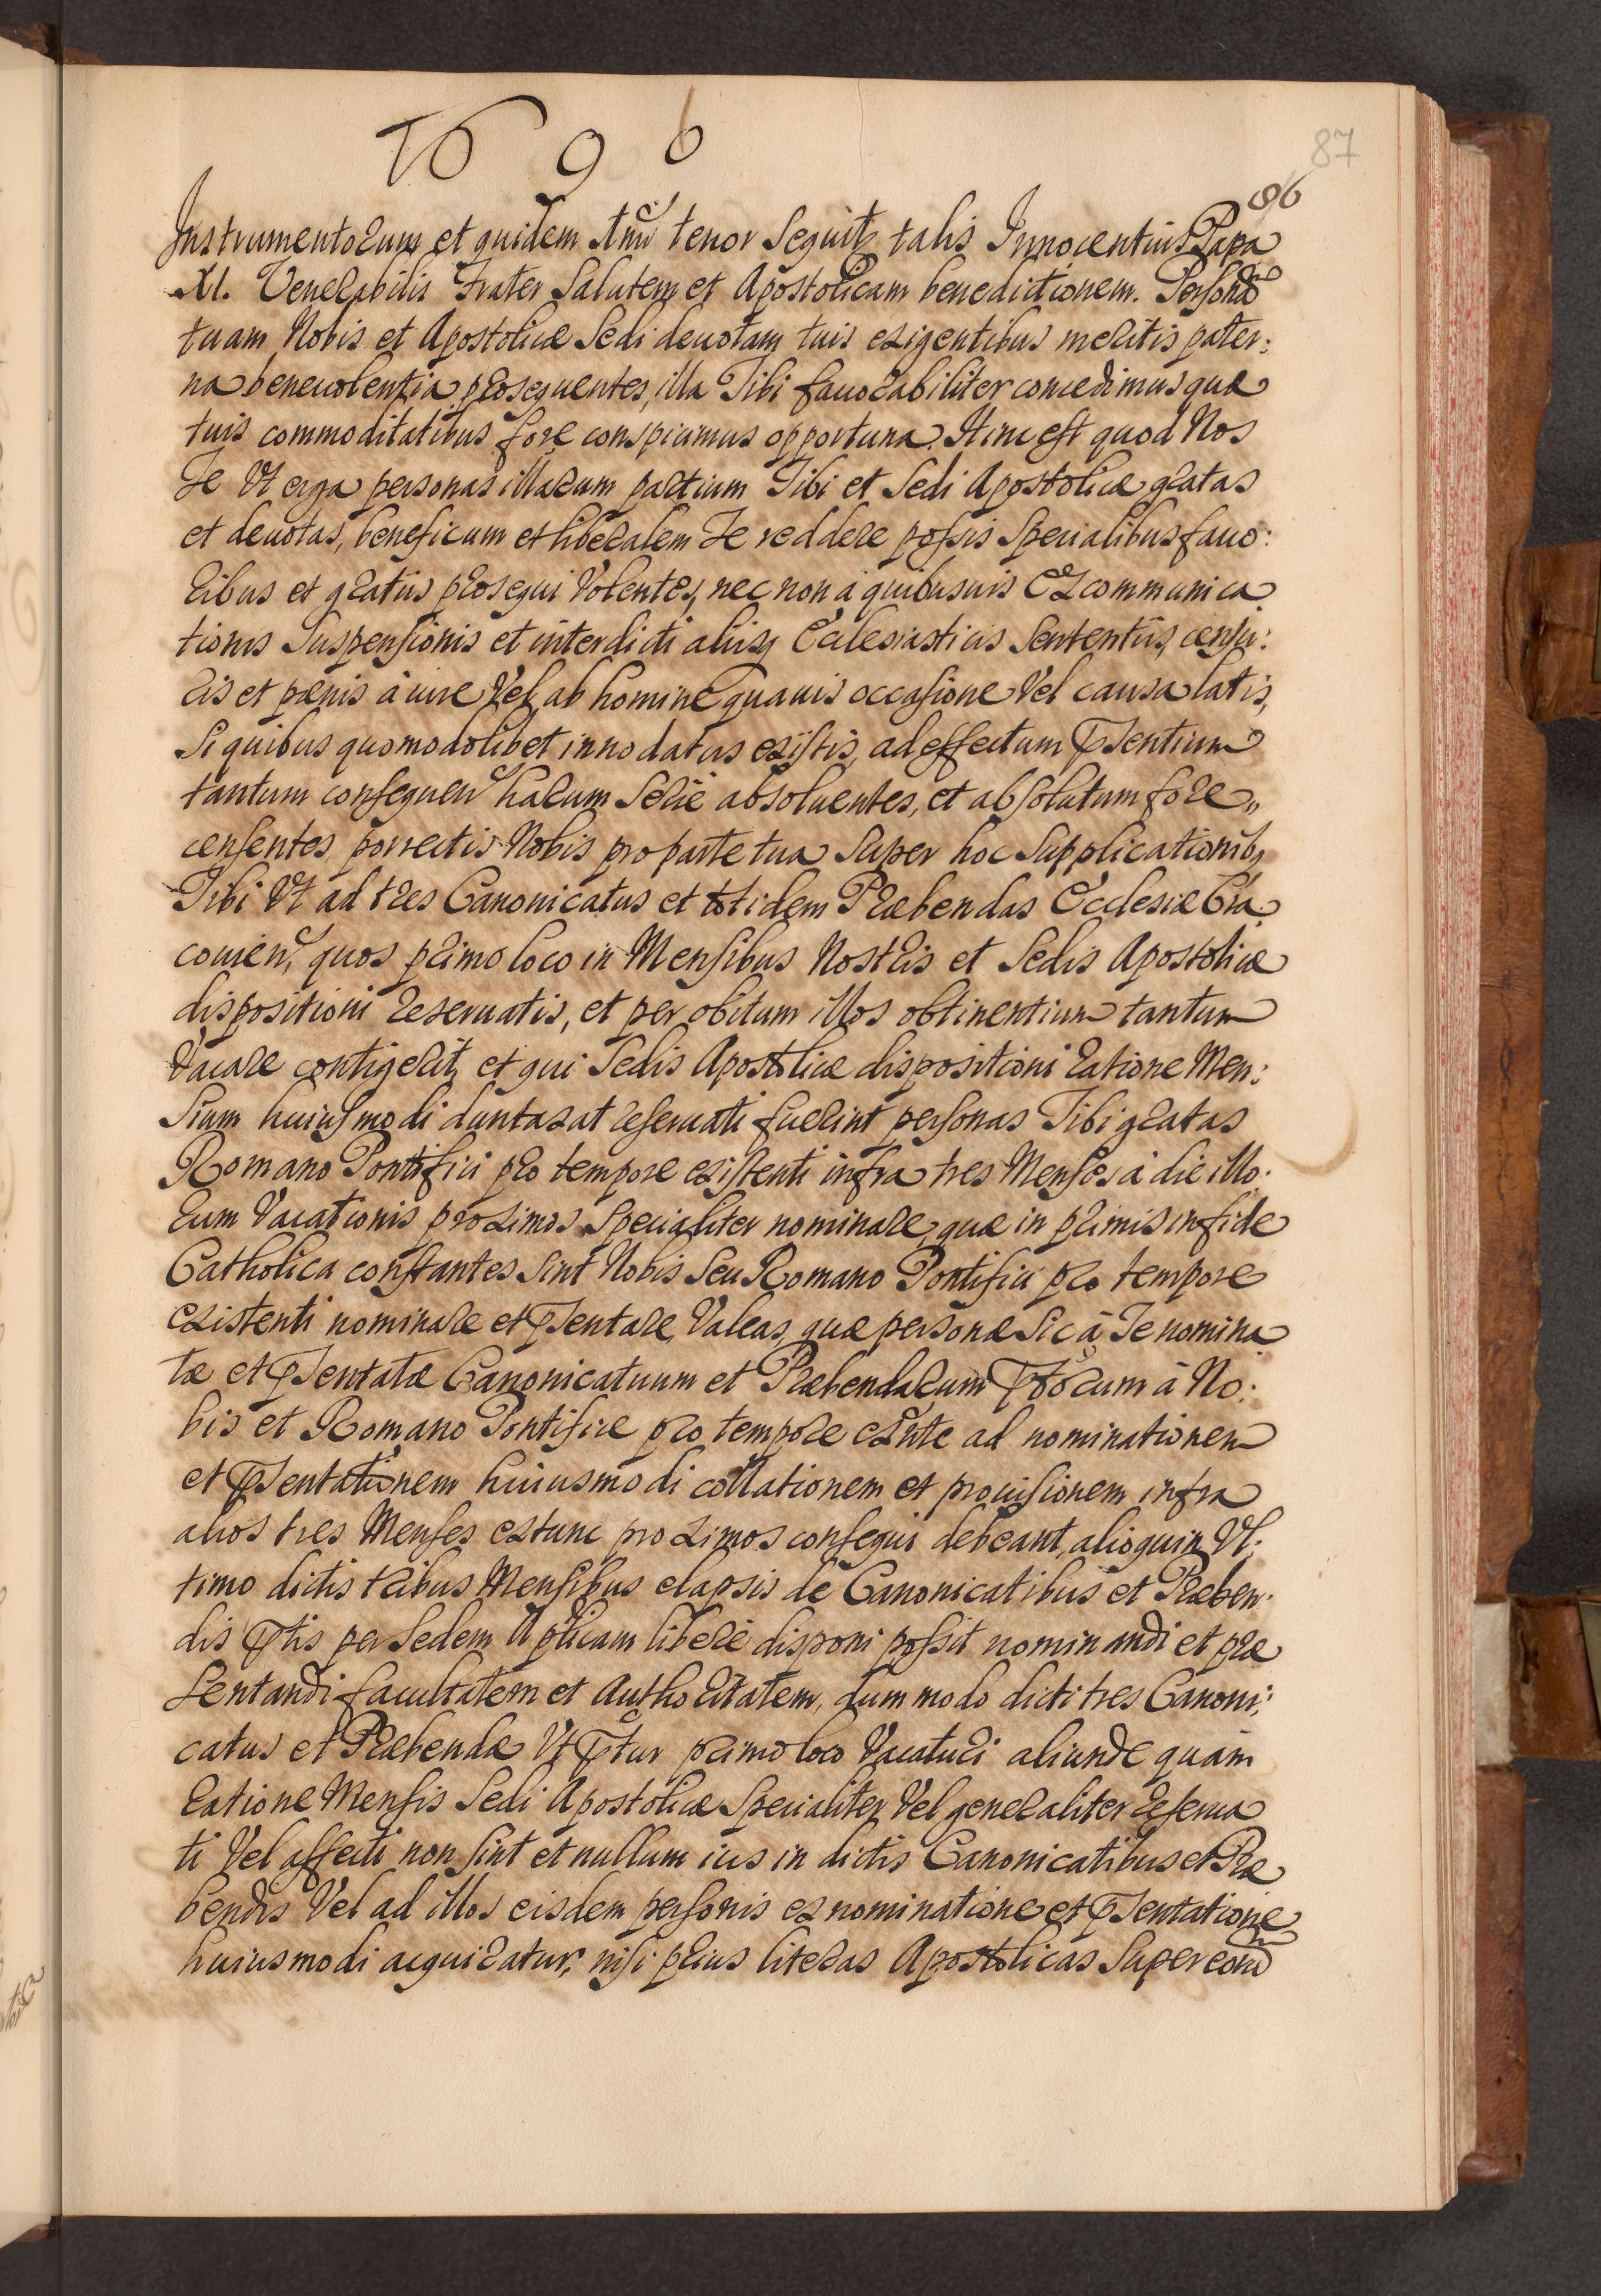 1696
87
86
Instrumentorum et quidem tenor Sequitr talis Innocentius Papa
XI. Venerabilis Frater Salutem et Apostolicam benedictionem. Personã
tuam Nobis et Apostolicæ Sedi deuotam tuis exigentibus meritis pater:
na beneuolentia prosequentes, illa Tibi fauorabiliter concedimus quæ
tuis commoditatibus fore conspicimus opportuna. Hinc est quod Nos
Te Vt erga personas illarum partium Tibi et Sedi Apostolicæ gratas
et deuotas, beneficum et liberalem Te reddere possis Specialibus fauo:
ribus et gratiis prosequi Volentes, nec non à quibusuis Excommunica
tionis Suspensionis et interdicti aliisq Ecclesiasticis Sententiis, censu:
ris et pænis à iure Vel ab homine quauis occasione Vel causa latis,
Si quibus quomodolibet innodatus existis, ad effectum pñsentium
tantum consequeñ harum Serie absoluentes, et absolutum fore„
censentes, porrectis Nobis pro parte tua Super hoc Supplicationibq
Tibi Vt ad tres Canonicatus et totidem Præbendas Ecclesiæ Cra
couieñ, quos primo loco in Mensibus Nostris et Sedis Apostolicæ
dispositioni reseruatis, et per obitum illos obtinentium tantum
Vacare contigerit, et qui Sedis Apostolicæ dispositioni ratione Men:
Sium huiusmodi duntaxat reseruati fuerint personas Tibi gratas
Romano Pontifici pro tempore existenti infra tres Menses à die illo:
rum Vacationis proximos Specialiter nominare, quæ in primis in fide
Catholica constantes Sint Nobis Seu Romano Pontifici pro tempore
existenti nominare et pñsentare Valeas, quæ personæ Sic à Te nomina
tæ et pñsentatæ Canonicatuum et Præbendarum pttorum à No:
bis et Romano Pontifice pro tempore exñte ad nominationem
et pñsentationem huiusmodi collationem et prouisionem infra
alios tres Menses extunc proximos consequi debeant, alioquin Vl:
timo dictis tribus Mensibus elapsis de Canonicatibus et Præben:
dis pttis per Sedem Aplicam liberè disponi possit nominandi et præ
Sentandi facultatem et Authoritatem, dummodo dicti tres Canoni:
catus et Præbendæ Vt pfertur primo loco Vacaturi aliunde quàm
ratione Mensis Sedi Apostolicæ Specialiter Vel generaliter reserua
ti Vel affecti non Sint et nullum ius in dictis Canonicatibus et Præ
bendis Vel ad illos eisdem personis ex nominatione et pñsentatione
huiusmodi acquiratur, nisi prius literas Apostolicas Super eorũd